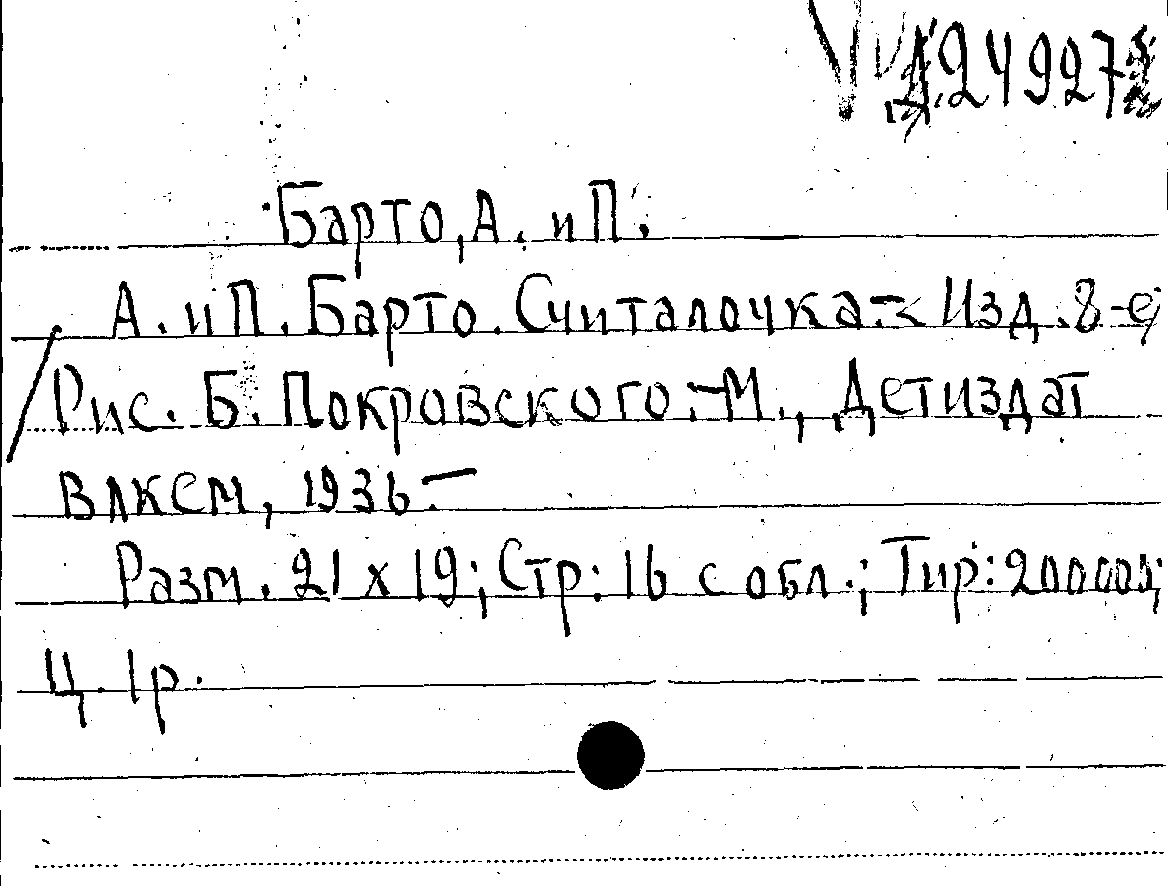 Д249272
Барто, А. и П.
А. и П. Барто. Считалочка.-< Изд. 8-е;
Рис. Б. Покровского.-М., Детиздат
ВЛКСМ, 1936.-
Разм. 21 x 19; Стр: 16 с обл.; Тир: 200000;
Ц. 1р.